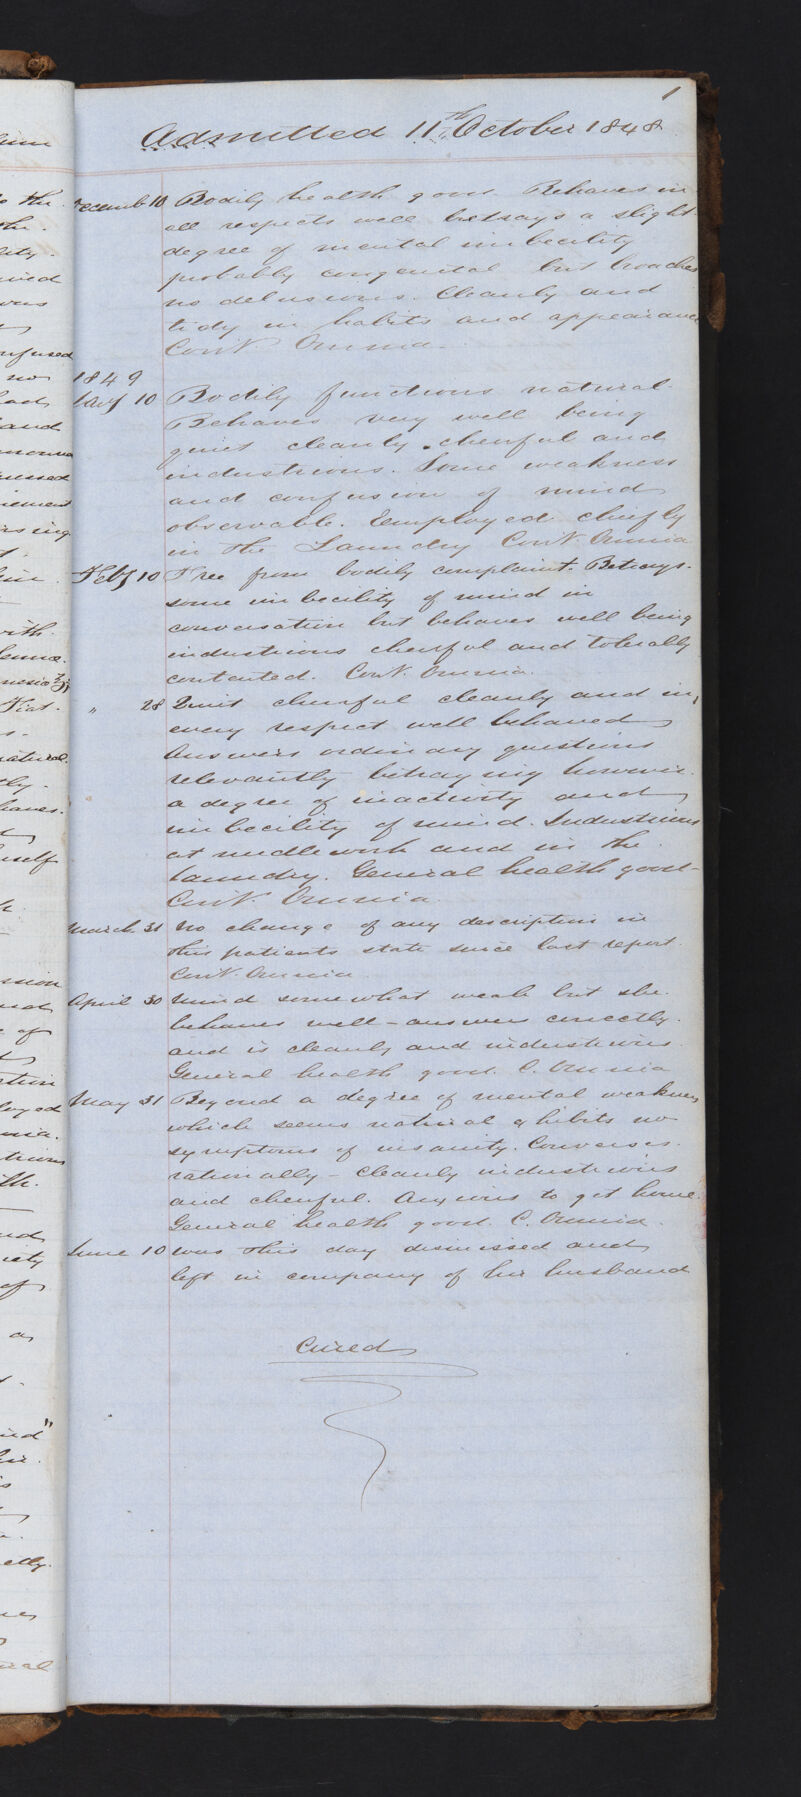 1
Admitted 11th October 1848
Decemb 10 Bodily health good. Behaves in
all respects well betrays a slight
degree of mental imbecility
probably congenital but broaches
no delusions. Cleanly and
tidy in habits and appearance
Cont. Omnia.
1849
Jany 10 Bodily functions natural.
Behaves very well being
quiet cleanly cheerful and
industrious. Some weakness
and confusion of mind
observable. Employed chiefly
in the Laundry Cont. Omnia
Feby 10 Free from bodily complaint. Betrays
some imbecility of mind in
conversation but behaves well being
industrious cheerful and tolerally
contented. Cont. Omnia.
" 28 Quiet cheerful cleanly and in
every respect well behaved
Answers ordinary questions
relevantly betraying however
a degree of inactivity and
imbecility of mind. Industrious
at needlework and in the
laundry. General health good-
Cont. Omnia.
March 31 No change of any description in
this patients state since last report.
Cont. Omnia
April 30 Mind somewhat weak but she
behaves well - answers correctly
and is cleanly and industrious.
General health good. C. Omnia
May 31 Beyond a degree of mental weakness
which seems natural exhibits no
symptoms of insanity. Converses
rationally - cleanly industrious
and cheerful. Anxious to get home.
General health good. C. Omnia.
June 10 Was this day dismissed and
left in company of her husband
Cured